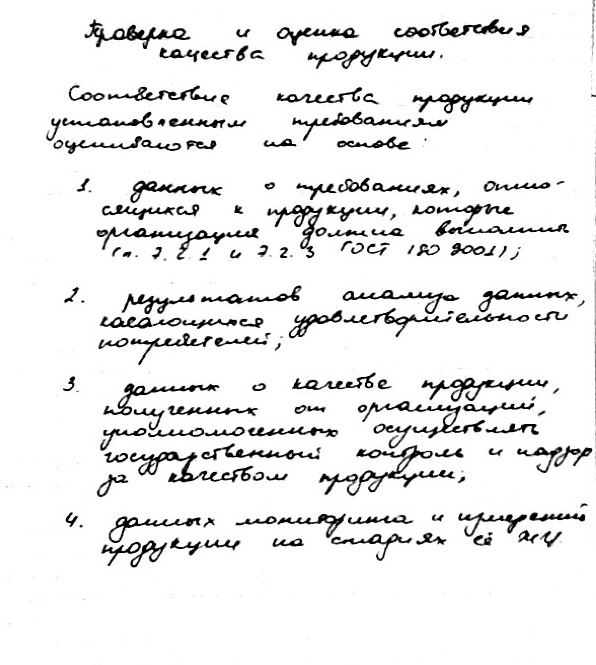 Проверка и оценка соответствия
качества продукции.
Соответствие качества продукции
установленным требованиям
оцениваются на основе:
1. данных о требованиях, отно-
сящихся к продукции, которые
организация должна выполнить
(п. 7.2.1 и 7.2.3 ГОСТ ISO 9001);
2. результатов анализа данных,
касающихся удовлетворительности
потребителей;
3. данных о качестве продукции,
полученных от организаций,
уполномоченных осуществлять
государственный контроль и надзор
за качеством продукции;
4. данных мониторинга и измерений
продукции на стадиях её ЖЦ.